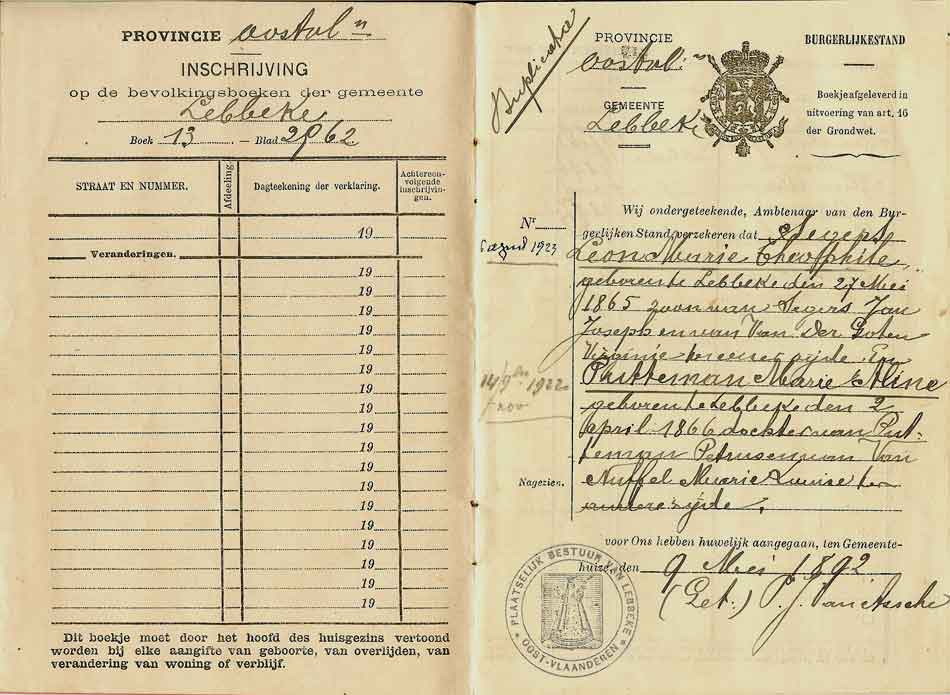 PROVINCIE Oostvl n
INSCHRIJVING
op de bevolkingsboeken der gemeente
Lebbeke
Boek 13 — Blad 2962
STRAAT EN NUMMER.
Afdeeling.
Dagteekening der verklaring.
Achtereen-
volgende
inschrijvin-
gen.
19
Veranderingen.
19
19
19
19
19
19
19
19
19
19
19
19
19
19
19
19
19
19
Dit boekje moet door het hoofd des huisgezins vertoond
worden bij elke aangifte van geboorte, van overlijden, van
verandering van woning of verblijf.
Duplicata
PROVINCIE
Oostvl
GEMEENTE
Lebbeke
BURGERLIJKESTAND
Boekje afgeleverd in
uitvoering van art. 16
der Grondwet.
Nr
1923
14 1922
nov
Nagezien.
Wij ondergeteekende, Ambtenaar van den Bur-
gerlijken Stand, verzekeren dat Segers
Leon Marie Theophile
geboren te Lebbeke den 27 Mei
1865 zoon van Segers Jan
Joseph en van Van der Goten
Virginie ter eener zijde En
Putteman Marie Aline
geboren te Lebbeke den 2
april 1866 dochter van Put-
teman Petrus en van Van
Nuffel Marie Louise ter
andere zijde.
voor Ons hebben huwelijk aangegaan, ten Gemeente-
huize, den 9 Mei 1892
(Get.) P. J. Van Assche
PLAATSELIJK BESTUUR VAN LEBBEKE
OOST-VLAANDEREN